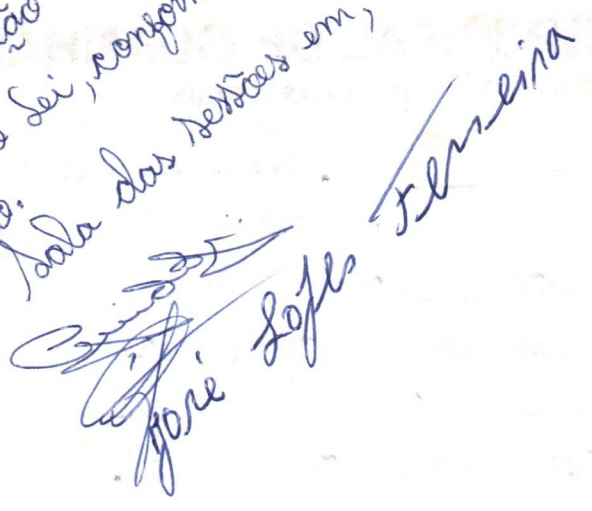 ão
Lei, conform
o.
Sala das sessões em,
José Lopes Ferreira